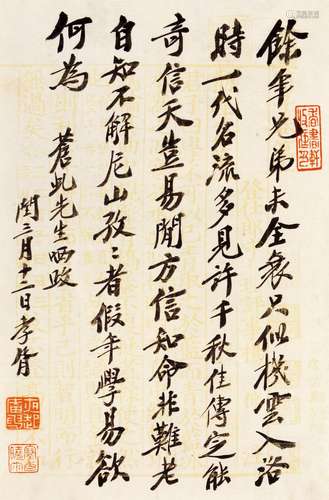 餘年兄弟未全衰只似機雲入洛
時一代名流多見許千秋佳傳定能
奇信天豈易聞方信知命非難老
自知不解尼山孜〻者假年學易欲
何為 蒼虬先生哂政
閏三月十二日孝胥